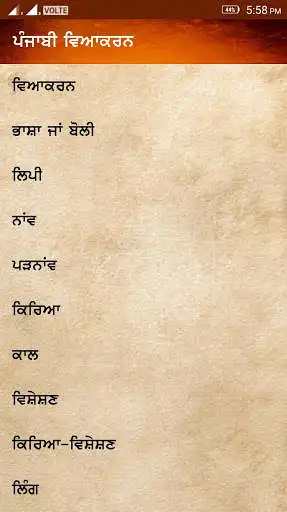 VOLTE 44% 5:58 PM
ਪੰਜਾਬੀ ਵਿਆਕਰਨ
ਵਿਆਕਰਨ
ਭਾਸ਼ਾ ਜਾਂ ਬੋਲੀ
ਲਿਪੀ
ਨਾਂਵ
ਪੜਨਾਂਵ
ਕਿਰਿਆ
ਕਾਲ
ਵਿਸ਼ੇਸ਼ਣ
ਕਿਰਿਆ-ਵਿਸ਼ੇਸ਼ਣ
ਲਿੰਗ